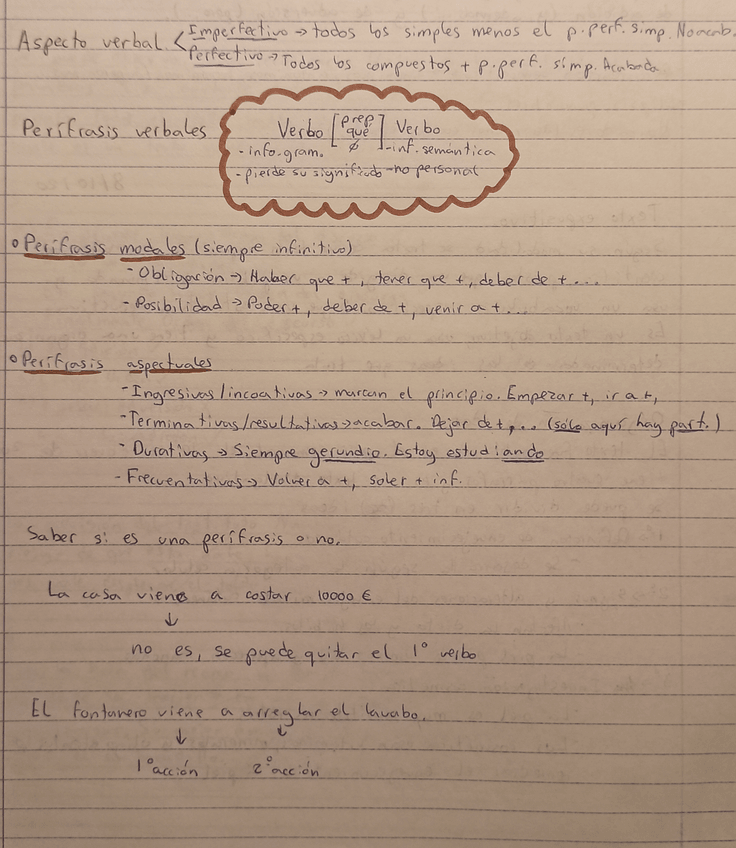 Aspecto verbal < Imperfectivo → todos los simples menos el p.perf. simp. No acab.
Perfectivo → Todos los compuestos + p.perf. simp. Acabada
Perífrasis verbales Verbo [prep que ø] Verbo
- info.gram. - inf. semántica
- pierde su significado - no personal
o Perífrasis modales (siempre infinitivo)
- Obligación → Haber que +, tener que +, deber de +...
- Posibilidad → Poder +, deber de +, venir a +...
o Perífrasis aspectuales
- Ingresivas/incoativas → marcan el principio. Empezar +, ir a +,
- Terminativas/resultativas → acabar. Dejar de +,... (sólo aquí hay part.)
- Durativas → Siempre gerundio. Estoy estudiando
- Frecuentativas → Volver a +, soler + inf.
Saber si es una perífrasis o no.
La casa viene a costar 10000 €
↓
no es, se puede quitar el 1º verbo
El fontanero viene a arreglar el lavabo.
↓ ↓
1º acción 2º acción